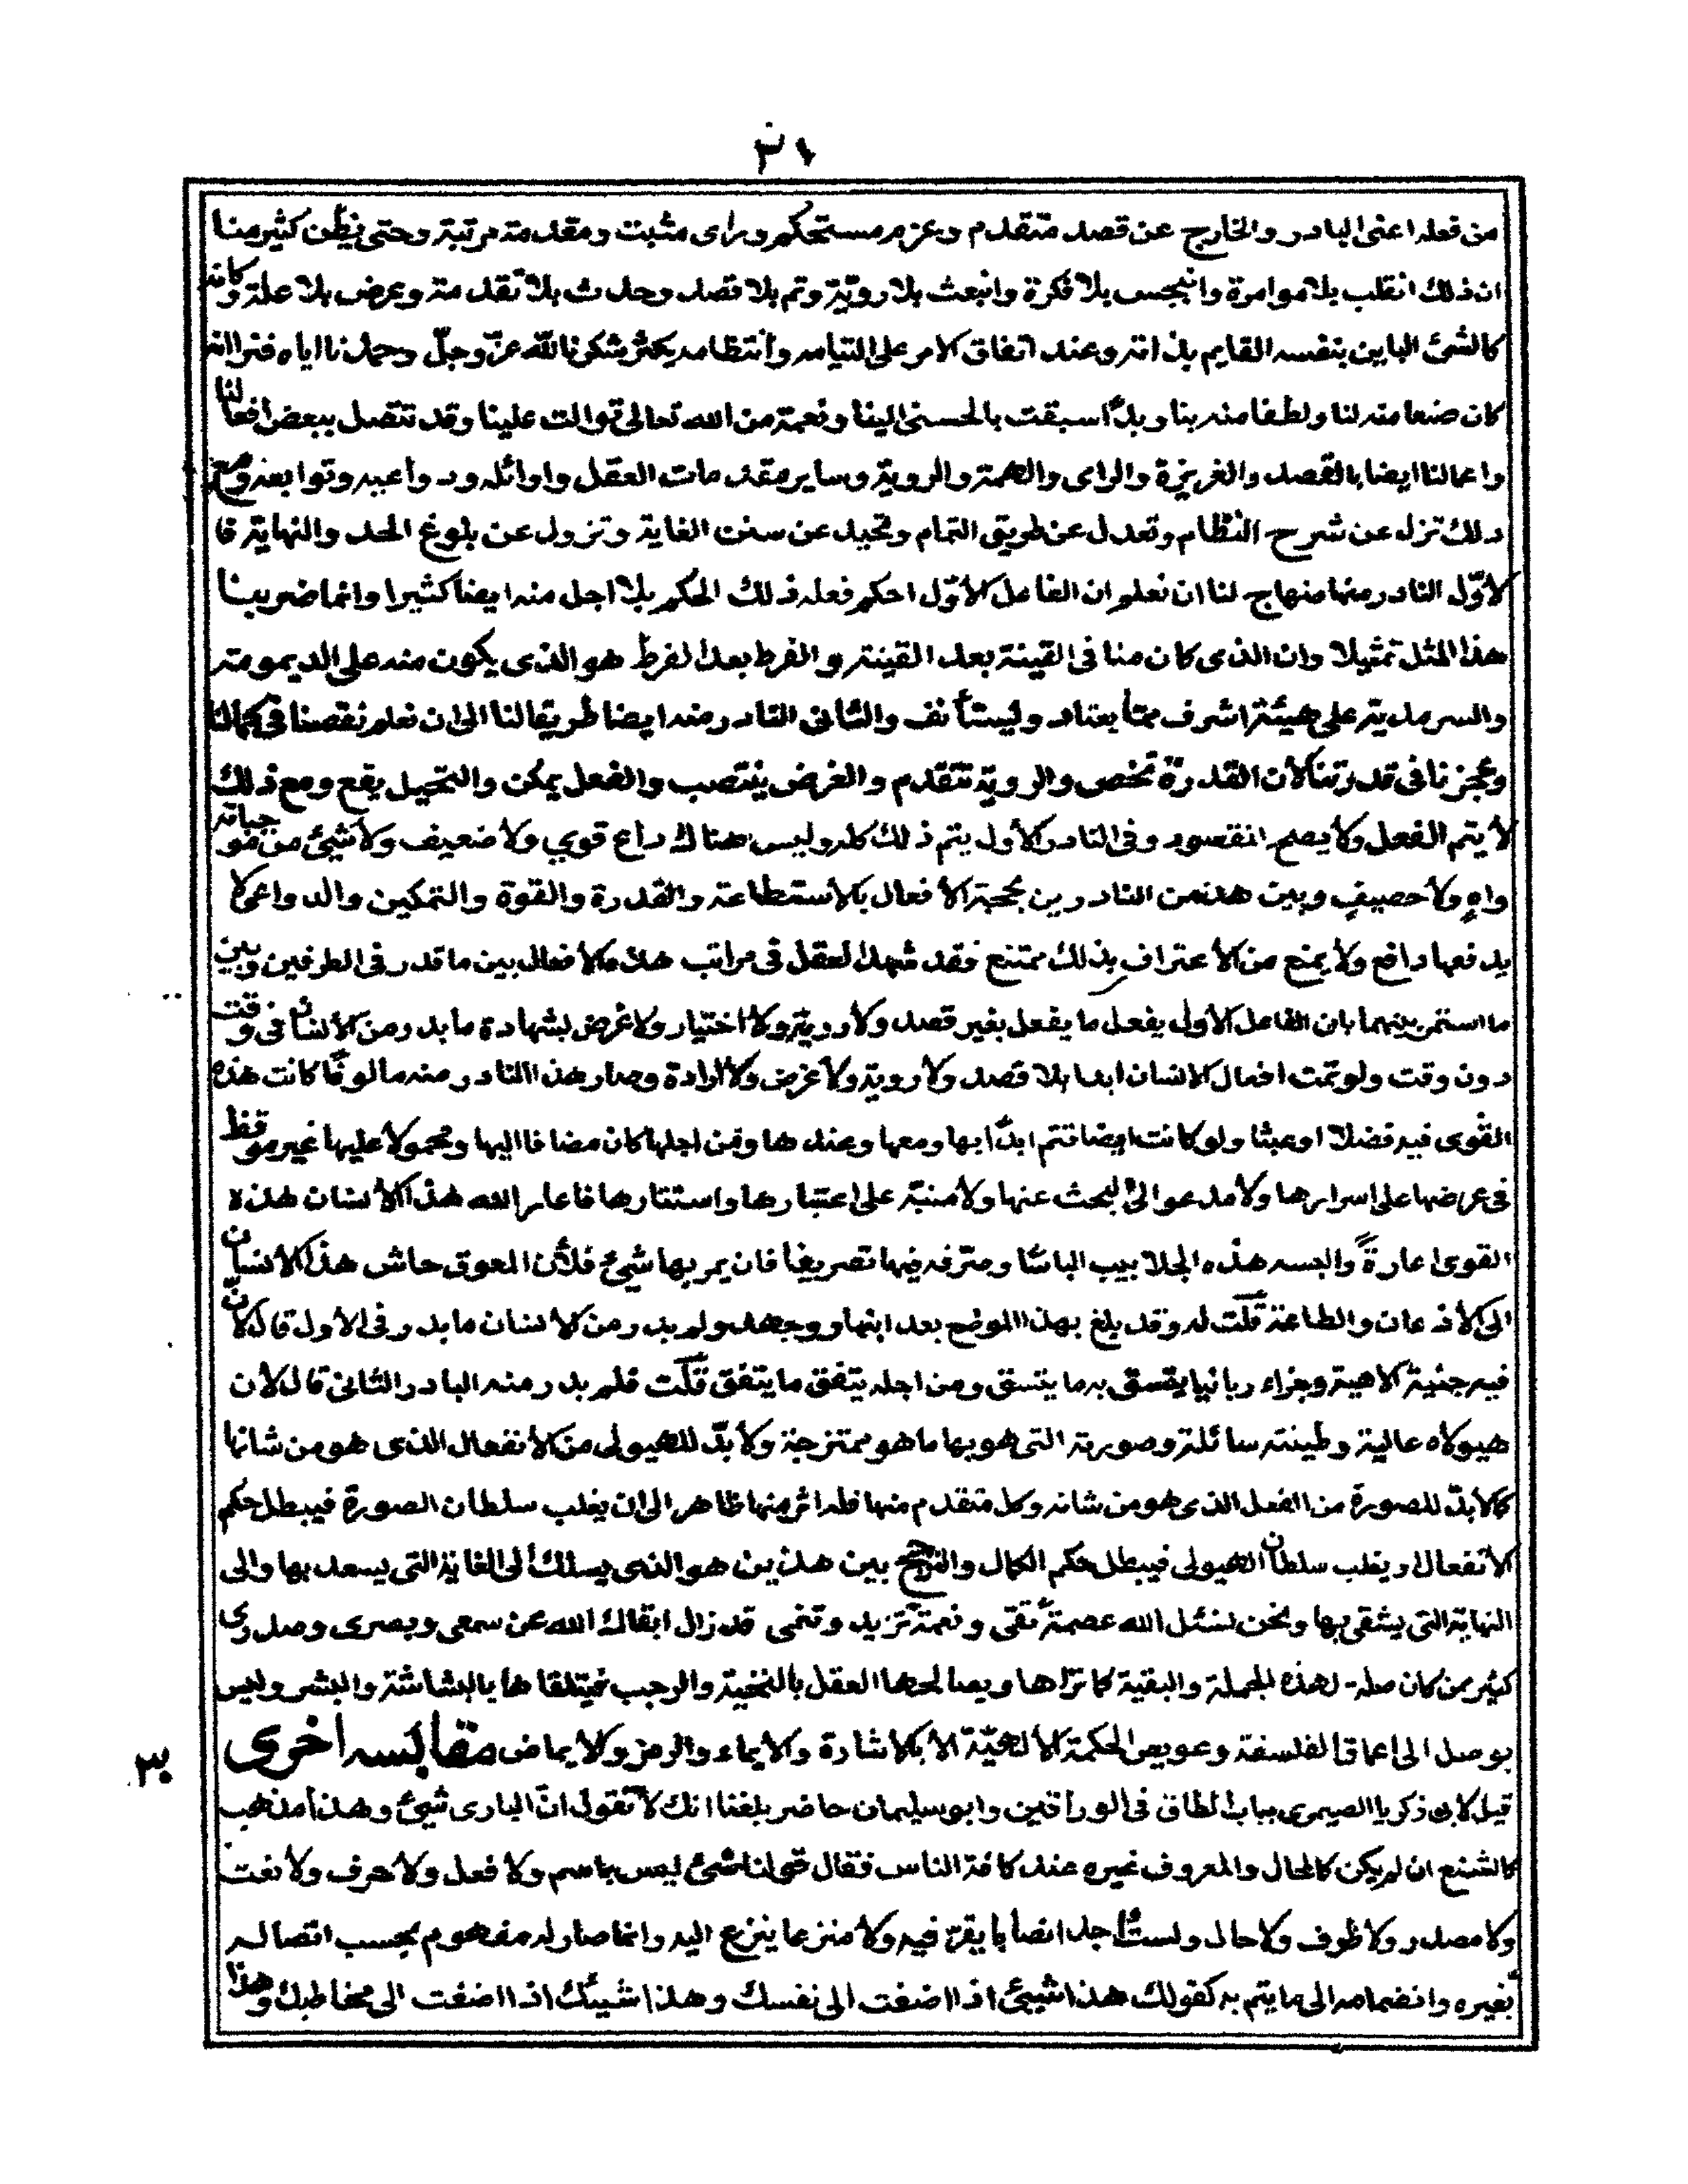 من فعله اعنى البادر والخارج عن قصد متقدم وعزم مستحكم وراى مثبت ومقدمة مرتبة وحتى يظن كثير منا
ان ذلك انقلب بلا موامرة وانبجس بلا فكرة وانبعث بلا رويّة وتم بلا قصد وحدث بلا تقدمة وعرض بلا علة وكانه
كالشئ الباين بنفسه القايم بذاته وعند اتفاق الامر على التيامه وأنتظامه يكثر شكرنا لله عزّ وجلّ وحمدنا اياه فنرا انه
كان صنعا منه لنا ولطفا منه بنا ويدًا سبقت بالحسنى الينا ونعمة من الله تعالى توالت علينا وقد تتصل ببعض افعالنا
واعمالنا ايضا بالقصد والغريزة والراى والهمة والروية وساير مقدمات العقل واوائله ودواعيه وتوابعه ومع
ذلك تزل عن شرح النظام وتعدل عن طريق التمام وتحيد عن سنن الغاية وتزول عن بلوغ الحد والنهاية فا
لاوّل النادر منها منهاج لنا ان نعلم ان الفاعل الاوّل احكم فعله ذلك الحكم بلا اجل منه ايضا كثيرا وانما ضربنا
هذا المثل تمثيلا وان الذى كان منا فى القينة بعد القينة والفرط بعد الفرط هو الذى يكون منه على الديمومة
والسرمدية على هيئة اشرف ممّا يعتاد وليستأنف والثانى النادر منه ايضا طريقا لنا الى ان نعلم نقصنا فى كمالنا
وعجزنا فى قدرتنا لان القدرة تخص والروية تتقدم والغرض ينتصب والفعل يمكن والتحيل يقع ومع ذلك
لا يتم الفعل ولا يصح المقصود وفى النادر الأول يتم ذلك كله وليس هناك داع قوي ولا ضعيف ولا شيئ من موجباته
واهٍ ولا حصيفٍ وبين هذين النادرين بحجبة الأفعال بالأستطاعة والقدرة والقوة والتمكين والدواعى لا
يدفعها دافع ولا يمنع من الأعتراف بذلك ممتنع فقد شهد العقل فى مراتب هذه الأفعال بين ما قدر فى الطرفين وبين
ما استمر بينهما بان الفاعل الأول يفعل ما يفعل بغير قصد ولا روية ولا اختيار ولا غرض بشهادة ما بدر من الأنسان فى وقت
دون وقت ولو تمت افعال الانسان ابدا بلا قصد ولا روية ولا غرض ولا ارادة وصار هذا النادر منه مالوفًا كانت هذه
القوى فيه فضلا او عبثا ولو كانت ايضا تتم ابدًا بها ومعها وعندها ومن اجلها كان مضافا اليها ومحمولا عليها غير موقظ
فى عرضها على اسرارها ولا مدعو الى البحث عنها ولا منبّه على اعتبارها واستنارها فاعار الله هذا الأنسان هذه
القوى اعارةً والبسه هذه الجلابيب الباسًا وصرّفه فيها تصريفا فان يمر بها شئ فلأن المعوق حاش هذا الانسان
الى الأذعان والطاعة قلت له وقد بلغ بهذا الموضع بعد ابنها وجهد ولم بدر من الانسان ما بدر فى الأول قال لانّ
فيه جنية الاهية وجزاء ربانيا يتسق به ما يتسق ومن اجله يتفق ما يتفق قلت فلم بدر منه البادر الثانى قال لان
هيولاه عالية وطينته سائلة وصورته التى هو بها ما هو ممتزجة ولا بدّ للهيولى من الأنفعال الذى هو من شانها
كما لابدّ للصورة من الفعل الذى هو من شانه وكل متقدم منها فله اثر منها ظاهر الى ان يغلب سلطان الصورة فيبطل حكم
الانفعال او يغلب سلطان الهيولى فيبطل حكم الكمال والترجح بين هذين هو الذى يسلك الى الغاية التى يسعد بها والى
النهاية التى يشقى بها ونحن نسئل الله عصمةً تقى ونعمةً تزيد وتنمى قد زال ابقاك الله عن سمعى وبصرى وصدرى
كثير من كان صلة لهذه الجملة والبقية كما تراها ويصالحها العقل بالتحية والرحب فيتلقاها بالبشاشة والبشر وليس
يوصل الى اعماق الفلسفة وعويص الحكمة الالهيّة الا بالاشارة والايماء والرمز والايماض مقايسه اخرى
قيل لابى زكريا الصيمرى بباب الطاق فى الوراقين وابو سليمان حاضر بلغنا انك لا تقول انّ البارى شيئ وهذا مذهب
كالشنع ان لم يكن كالمحال والمعروف غيره عند كافة الناس فقال قولنا شئ ليس باسم ولا فعل ولا حرف ولا نعت
ولا مصدر ولا ظرف ولا حال ولست اجد انصابا يقرّ فيه ولا منزعا ينزع اليه وانما صار له مفهوم بحسب اتصاله
بغيره وانضمامه الى ما يتم به كقولك هذا شيئى اذا اضفت الى نفسك وهذا شيئك اذا اضفت الى مخاطبك وهذا
٣٠